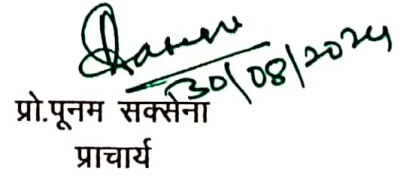 30/08/2024
प्रो.पूनम सक्सेना
प्राचार्य